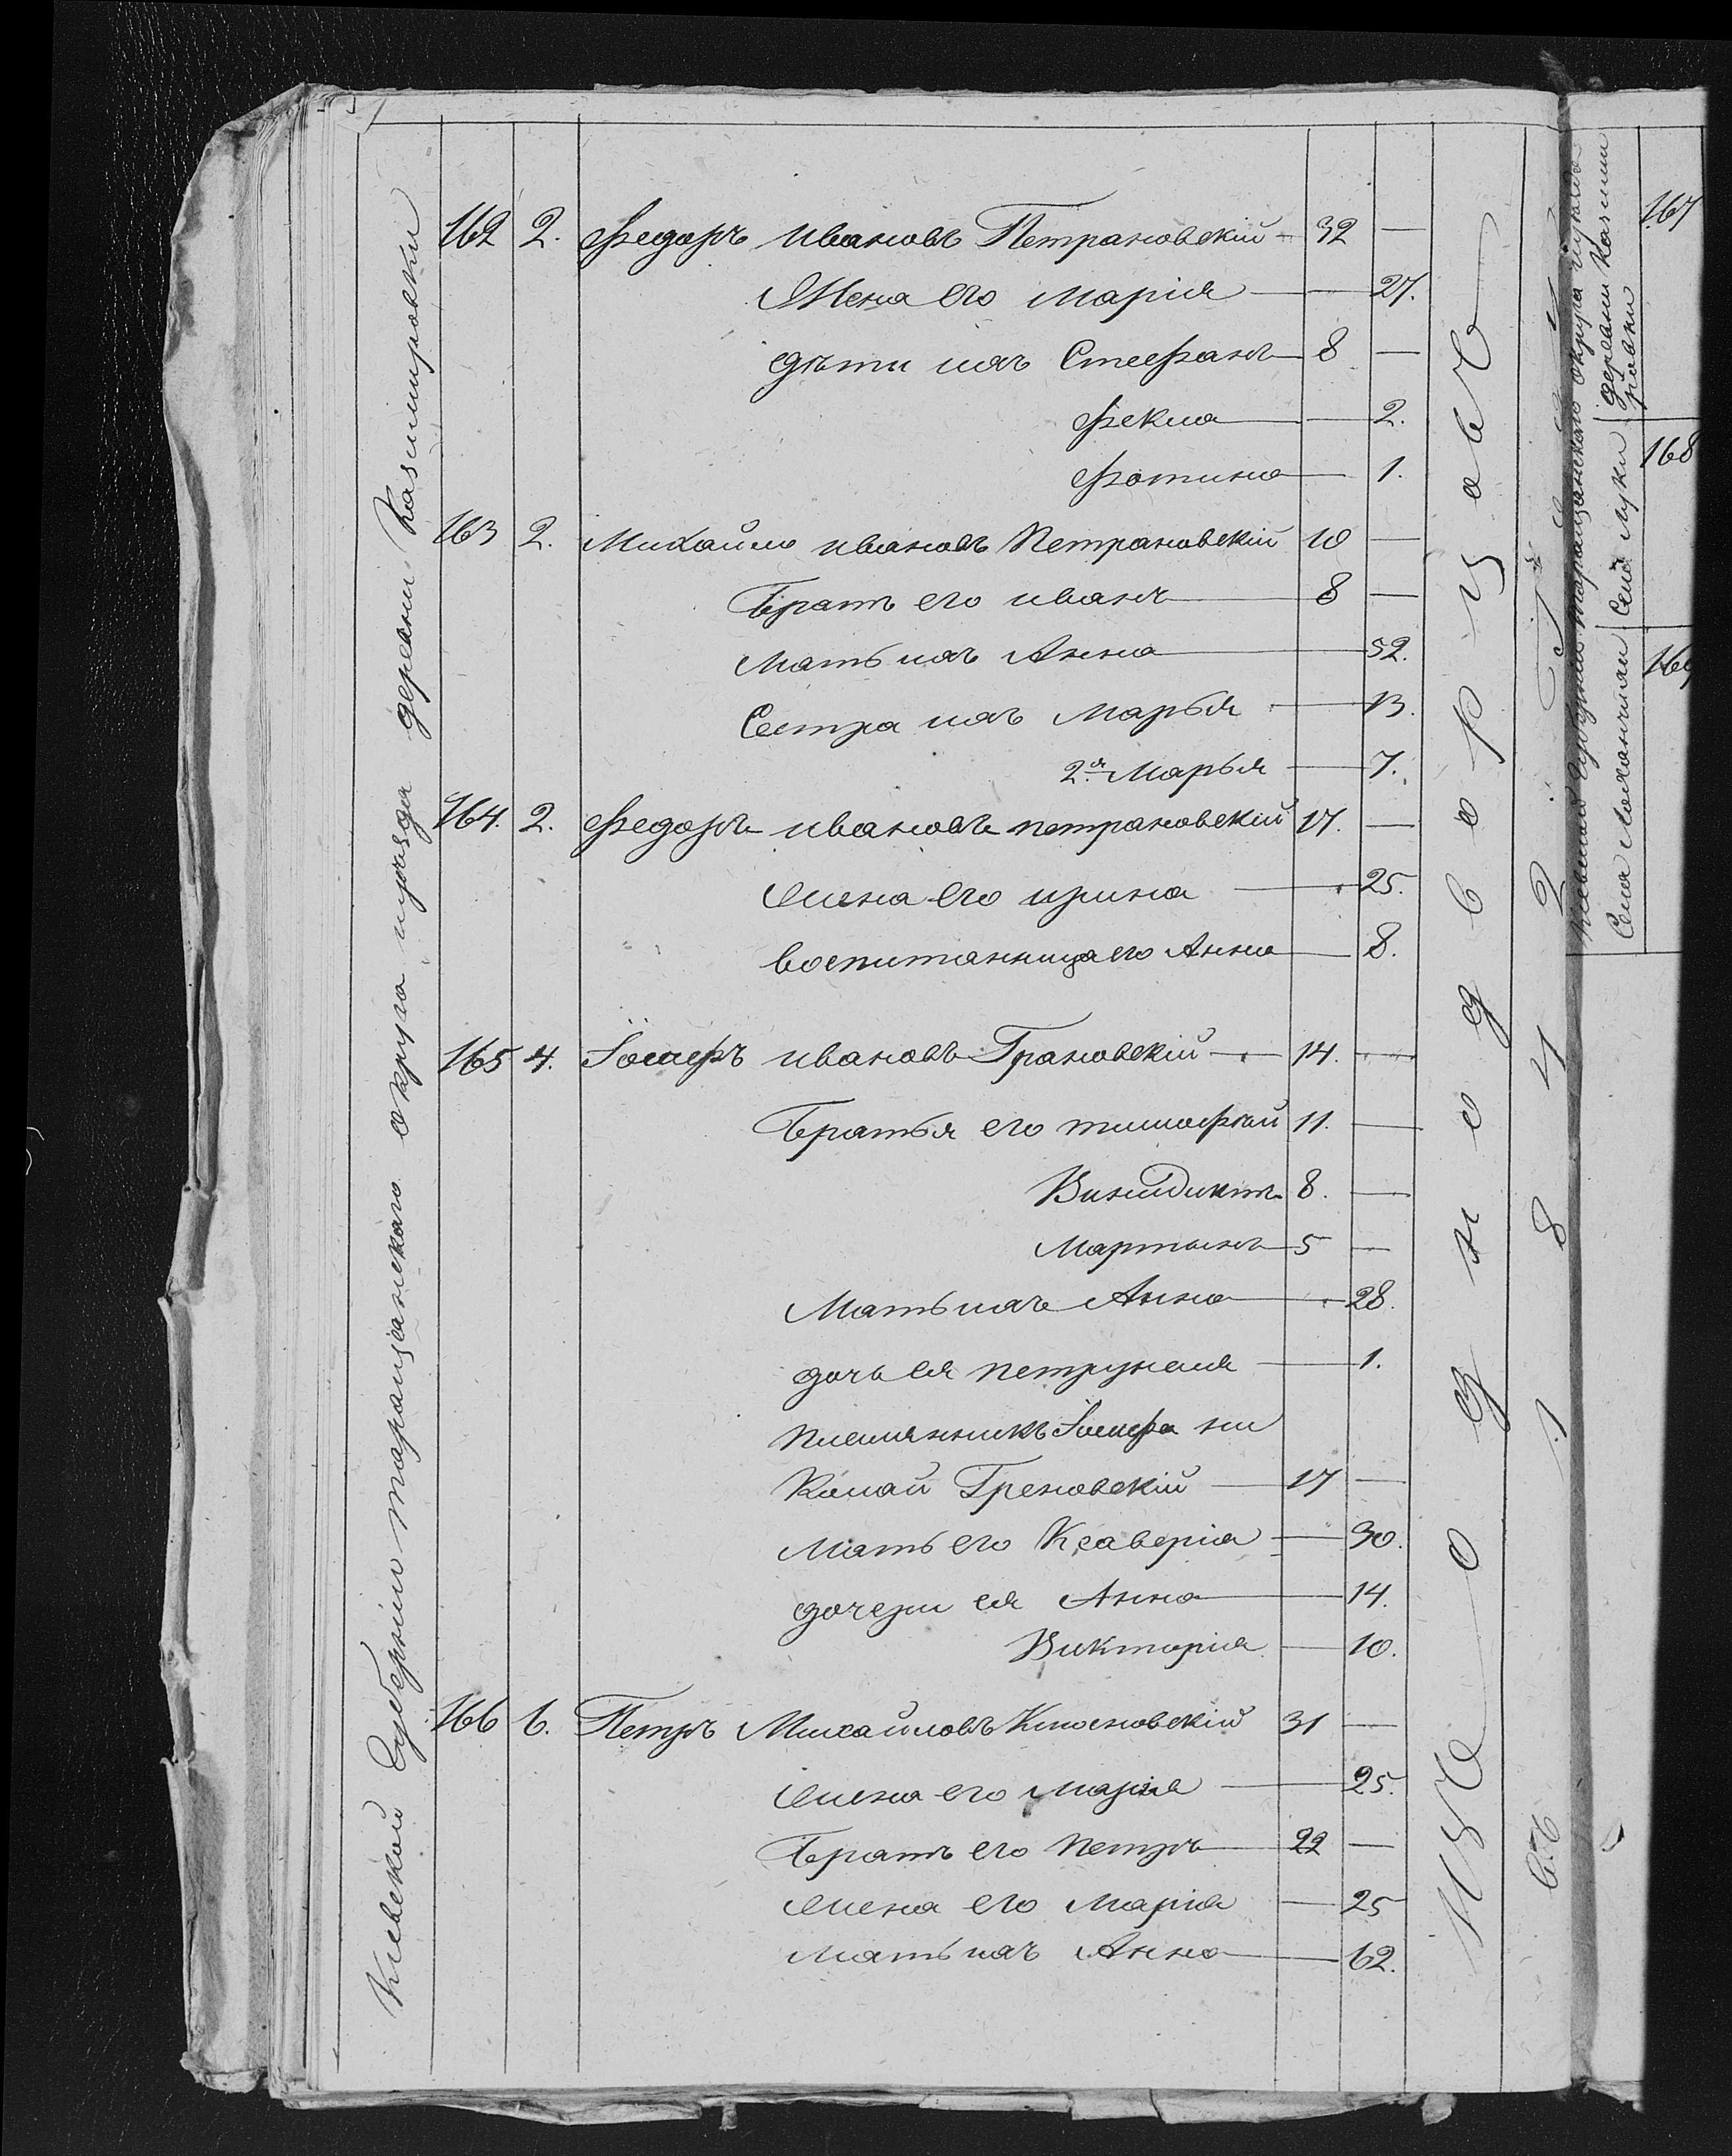 Киевской Губерніи таращанскаго округа уѣзда деревни Казимировки
162 2. Федоръ Ивановъ Петрановскій 32 —
Жена его Марія — 27.
дѣти ихъ Стефанъ 8 —
Фекла — 2.
Фотина — 1.
163 2. Михайло Ивановъ Петрановскій 10 —
Братъ его Иванъ 8 —
Мать ихъ Анна — 52.
Сестра ихъ Марья — 13.
2я Марья — 7.
164. 2. Федоръ Ивановъ Петрановскій 17. —
Жена его Ирина — 25.
воспитанница его Анна — 8.
165 4. Іосифъ Ивановъ Грановскій 14. —
Братья его Тимофѣй 11. —
Винидиктъ 8. —
Мартынъ 5 —
Мать ихъ Анна — 28.
дочь ея Петрунеля — 1.
Племянникъ Іосифа Ни
Колай Греновскій 17 —
Мать его Ксаверія — 30.
дочери ея Анна — 14.
Викторія — 10.
166 6. Петръ Михайловъ 31 —
Жена его Марія — 25.
Братъ его Петръ 22 —
Жена его Марія — 25
Мать ихъ Анна — 62.
Изъ однодворцевъ
въ 1842
Киевской Губерніи таращанскаго округа уѣзда
деревни Казими
ровки
167
Села Луки
168
Села
169